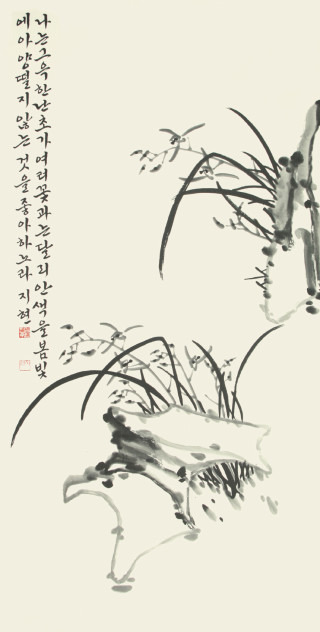 나는그윽한난초가여러꽃과는달리안색을봄빛
에아양떨지않는것을좋아하노라지현